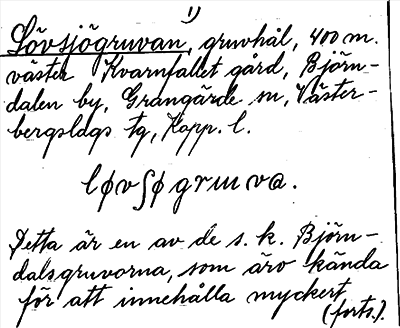 1)
Lövsjögruvan, gruvhål, 400 m.
väster Kvarnfallet gård, Björn-
dalen by, Grangärde sn, Väster-
bergslags tg, Kopp. l.
løvʃøgruvɑ.
Detta är en av de s. k. Björn-
dalsgruvorna, som äro kända
för att innehålla myckert
(forts.).